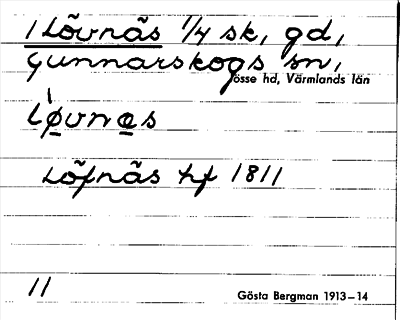 1 Lövnäs 1/4 sk, gd,
Gunnarskogs sn,
Jösse hd, Värmlands län
Lø̱vna̱s
Löfnäs hf 1811
11
Gösta Bergman 1913–14